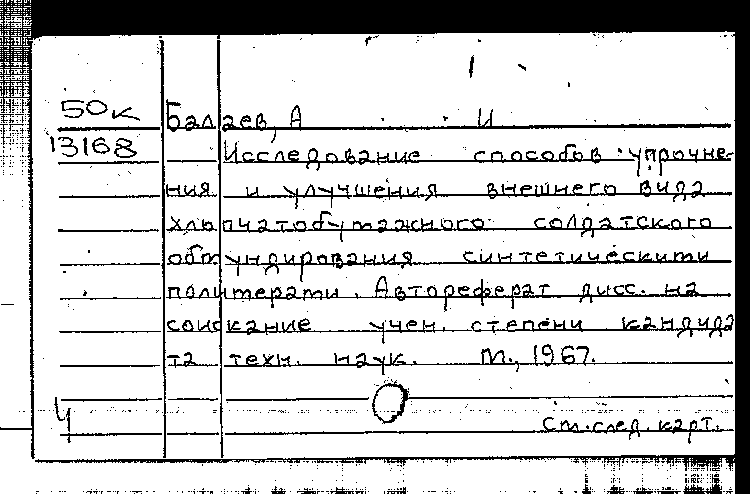 50к Балаев, А И
13168 Исследование способов упрочне-
ния и улучшения внешнего вида
хлопчатобумажного солдатского
обмундирования синтетическими
полимерами. Автореферат дисс. на
соискание учен. степени кандида
та техн. наук. М., 1967.
Ч
См. след. карт.